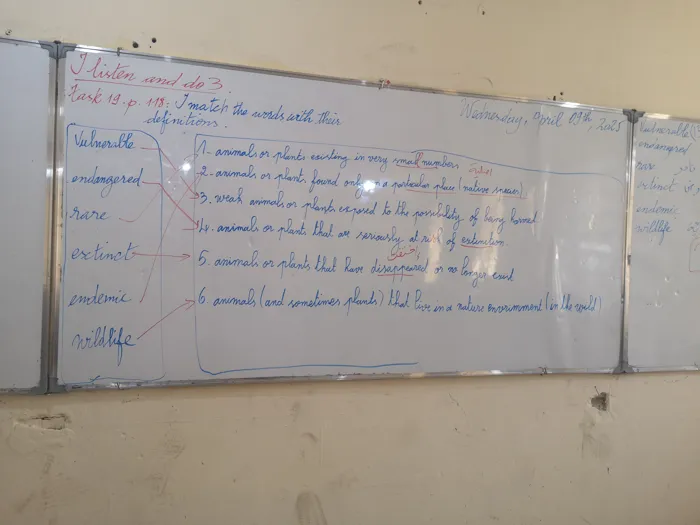 I listen and do 3
Task 19. p. 118: I match the words with their
definitions.
Wednesday, April 09th, 2025
Vulnerable
endangered
rare
extinct
endemic
wildlife
1. animals or plants existing in very small numbers
2. animals or plants found only in a particular place (native species)
3. weak animals or plants exposed to the possibility of being harmed
4. animals or plants that are seriously at risk of extinction.
5. animals or plants that have disappeared or no longer exist
6. animals (and sometimes plants) that live in a nature environment (in the world)
Vulnerable
endangered
rare
extinct
endemic
wildlife